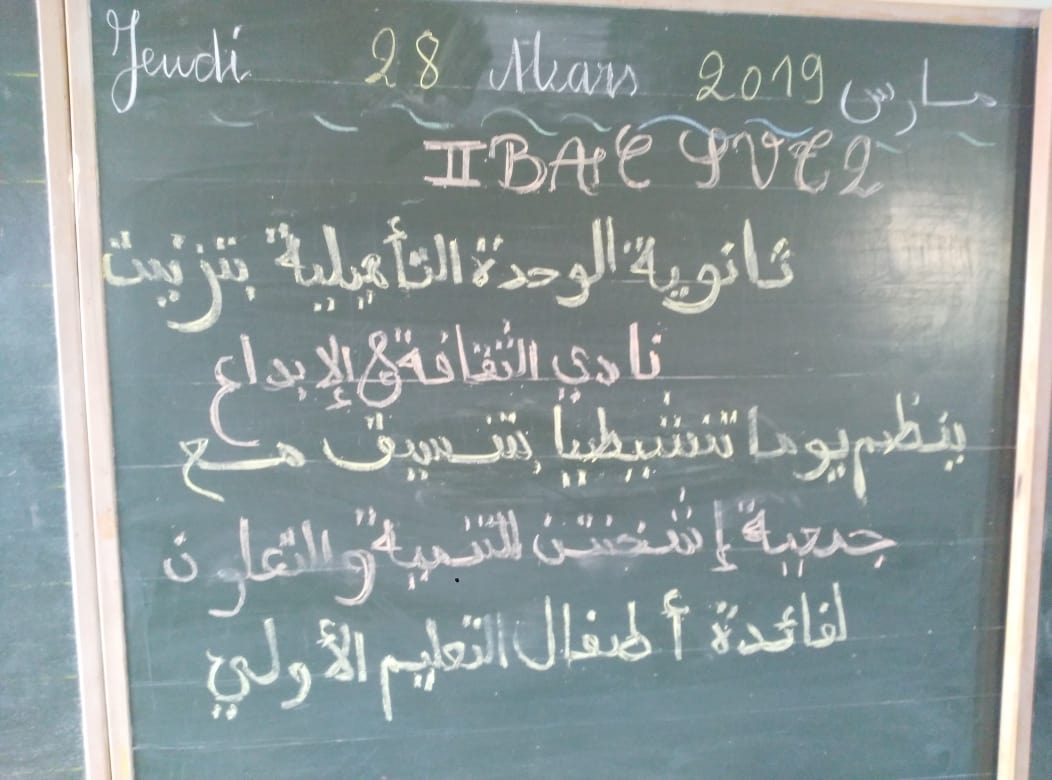 Jeudi 28 Mars 2019 مارس
II BAC SVT 2
ثانوية الوحدة التأهيلية بتزنيت
نادي الثقافة و الإبداع
ينظم يوما تنشيطيا بتنسيق مع
جمعية إشختن للتنمية والتعاون
لفائدة أطفال التعليم الأولي